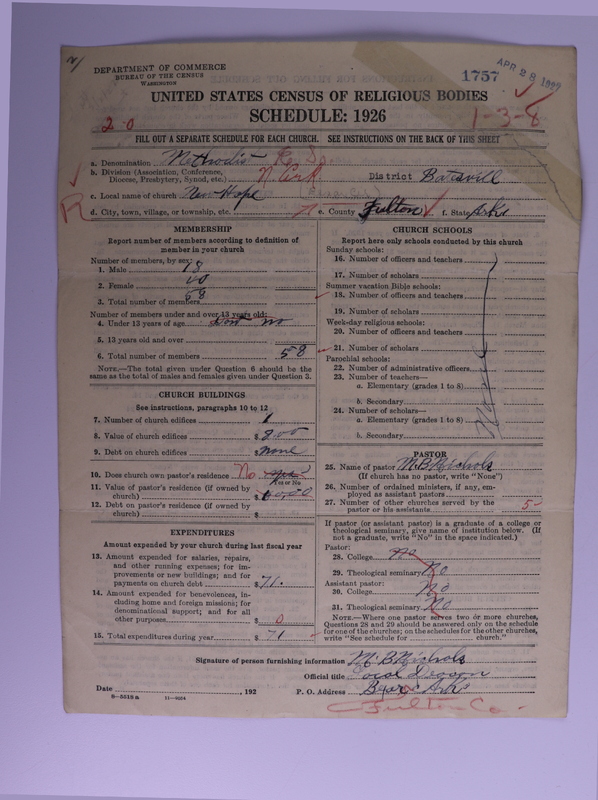 DEPARTMENT OF COMMERCE
BUREAU OF THE CENSUS
WASHINGTON
1757
APR 28
UNITED STATES CENSUS OF RELIGIOUS BODIES
SCHEDULE: 1926
1-3-8
2-0
FILL OUT A SEPARATE SCHEDULE FOR EACH CHURCH. SEE INSTRUCTIONS ON THE BACK OF THIS SHEET
a. Denomination Methodis
b. Division (Association, Conference, Diocese, Presbytery, Synod, etc.) N Ark District Batsvill
c. Local name of church New Hope
R
d. City, town, village, or township, etc. e. County Fulton f. State Arks
MEMBERSHIP
Report number of members according to definition of member in your church
Number of members, by sex:
1. Male 18
2. Female 40
3. Total number of members 58
Number of members under and over 13 years old:
4. Under 13 years of age no
5. 13 years old and over
6. Total number of members 58
NOTE.—The total given under Question 6 should be the same as the total of males and females given under Question 3.
CHURCH BUILDINGS
See instructions, paragraphs 10 to 12
7. Number of church edifices 1
8. Value of church edifices $ 800
9. Debt on church edifices $ none
10. Does church own pastor's residence? No
Yes or No
11. Value of pastor's residence (if owned by church) $
12. Debt on pastor's residence (if owned by church) $
EXPENDITURES
Amount expended by your church during last fiscal year
13. Amount expended for salaries, repairs, and other running expenses; for improvements or new buildings; and for payments on church debt $ 71.
14. Amount expended for benevolences, including home and foreign missions; for denominational support; and for all other purposes $ 0
15. Total expenditures during year $ 71
CHURCH SCHOOLS
Report here only schools conducted by this church
Sunday schools:
16. Number of officers and teachers
17. Number of scholars
Summer vacation Bible schools:
18. Number of officers and teachers
19. Number of scholars
Week-day religious schools:
20. Number of officers and teachers
21. Number of scholars
Parochial schools:
22. Number of administrative officers
23. Number of teachers—
a. Elementary (grades 1 to 8)
b. Secondary
24. Number of scholars—
a. Elementary (grades 1 to 8)
b. Secondary
None
PASTOR
25. Name of pastor M.B. Nichols
(If church has no pastor, write "None")
26. Number of ordained ministers, if any, employed as assistant pastors
27. Number of other churches served by the pastor or his assistants 5
If pastor (or assistant pastor) is a graduate of a college or theological seminary, give name of institution below. (If not a graduate, write "No" in the space indicated.)
Pastor:
28. College no
29. Theological seminary No
Assistant pastor:
30. College No
31. Theological seminary No
NOTE.—Where one pastor serves two or more churches, Questions 28 and 29 should be answered only on the schedule for one of the churches; on the schedules for the other churches, write "See schedule for church."
Signature of person furnishing information M.B Nichols
Official title Local Deacon
Date , 192 P. O. Address Arks
8—5518 a
Fulton Co.